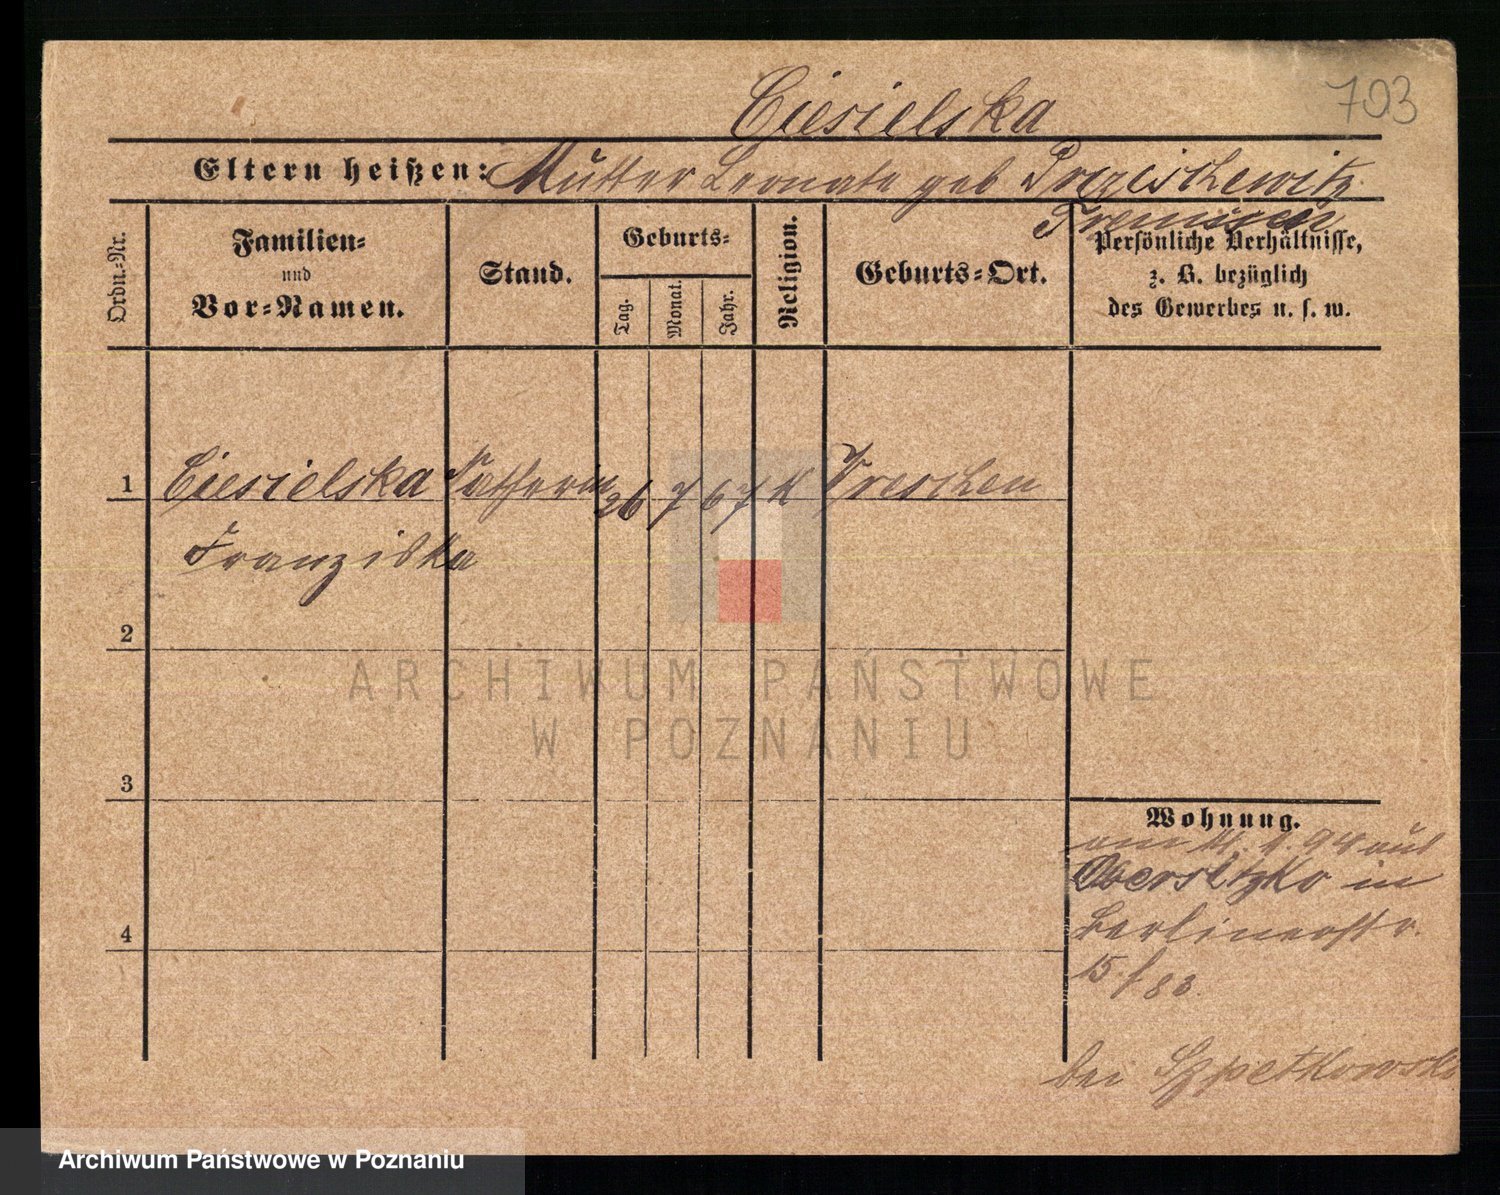 703
Ciesielska
Eltern heißen: Mutter Leonata geb Przeischewitz
Tremessen
Ordn.-Nr.
Familien-
und
Vor-Namen.
Stand.
Geburts-
Tag.
Monat.
Jahr.
Religion.
Geburts-Ort.
Persönliche Verhältnisse,
z. B. bezüglich
des Gewerbes u. s. w.
1 Ciesielska 26 7 67 K Wreschen
Franziska
2
ARCHIWUM PAŃSTWOWE
W POZNANIU
3
Wohnung.
am 94 aus
Obersitzko in
Berlinerstr.
15 / 83.
4
bei Szpetkowski
Archiwum Państwowe w Poznaniu